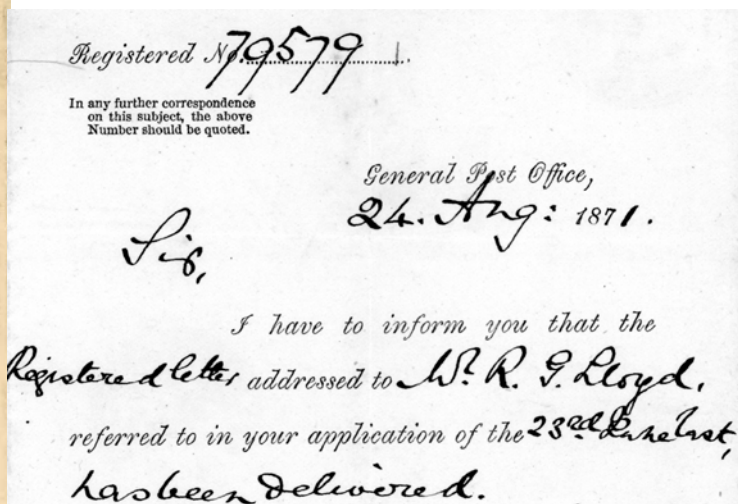 Registered No. 79579
In any further correspondence
on this subject, the above
Number should be quoted.
General Post Office,
24. Aug: 1871.
Sir,
I have to inform you that the
Registered letter addressed to Mr. R. G. Lloyd,
referred to in your application of the 23rd June last,
has been delivered.